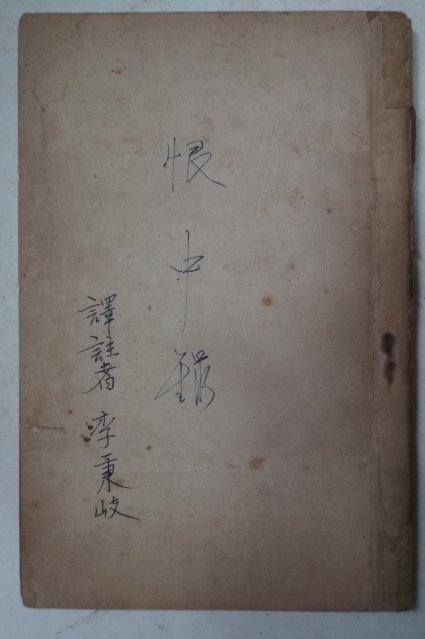 恨中錄
譯註者 李秉岐